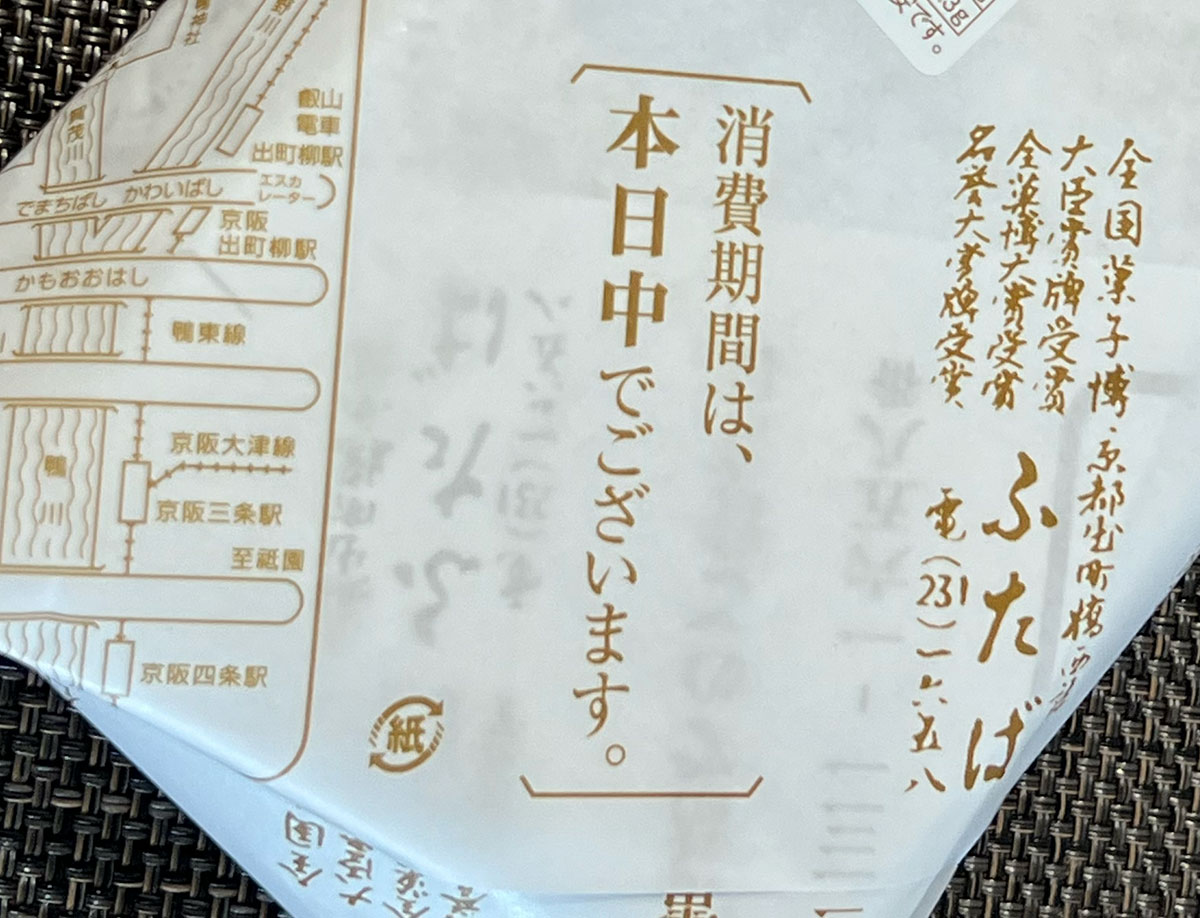 全国菓子博・京都出町橋西詰
大臣賞牌受賞
全菓博大賞受賞
名誉大賞牌受賞
ふたば
電(231)一六五八
消費期間は、
本日中でございます。
紙
賀茂川
叡山
電車
出町柳駅
エスカ
レーター
でまちばし
かわいばし
京阪
出町柳駅
かもおおはし
鴨東線
鴨川
京阪大津線
京阪三条駅
至祇園
京阪四条駅
です。